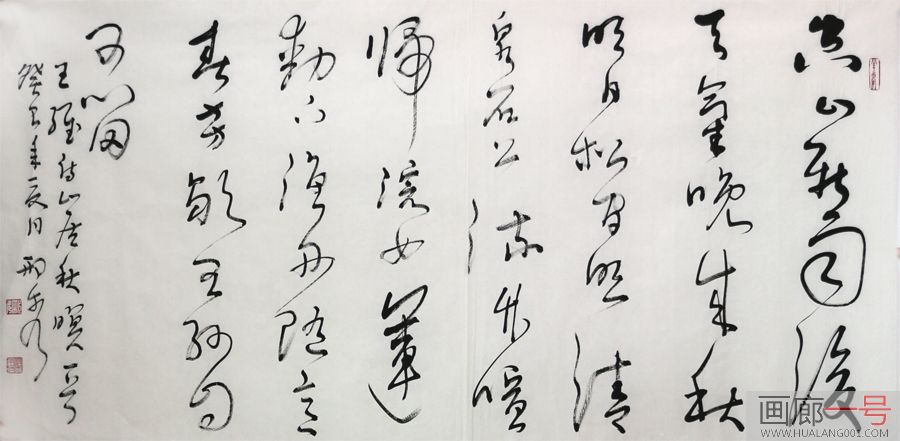 空山新雨後
天氣晚来秋
明月松间照清
泉石上流竹喧
归浣女蓮
動下渔舟随意
春芳歇王孙自
可留
王維诗山居秋暝一首
癸卯年夏月邢
画廊一号
WWW.HUALANG001.COM